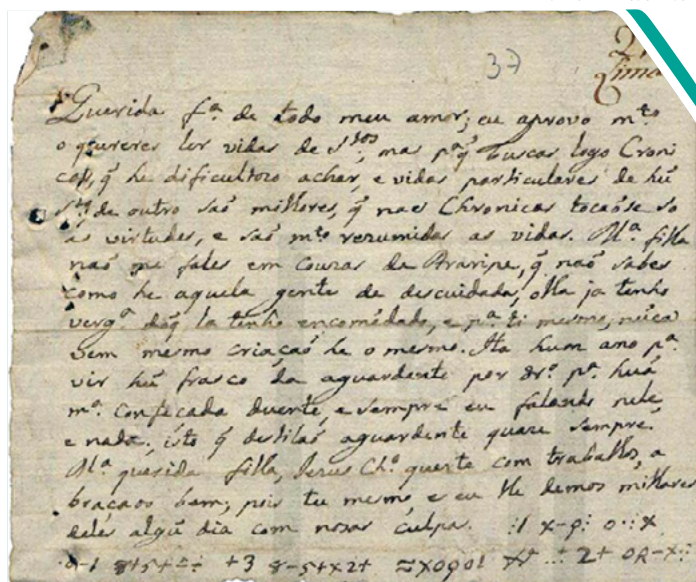 37
Querida f.ª de todo meu amor; eu aprovo m.to
o quereres ler vidas de S.tos; mas p.ª q̃ buscas logo Croni
cas, q̃ he dificultozo achar, e vidas particulares de hũ
S.to, de outro saõ milhores, q̃ nas Chronicas tocaõse so
as virtudes, e saõ m.to rezumidas as vidas. M.ª filla
naõ me fales em couzas da Araripe, q̃ naõ sabes
como he aquela gente de descuidada, olla ja tenho
verg.ª do q̃ la tenho encomẽdado, e p.ª ti mesmo, nũca
vem mesmo criaçaõ he o mesmo. Ha hum ano p.ª
vir hũ frasco da aguardente por p.ª huã
m.ª confeçada duente, e sempre eu falando nele
e nada; isto q̃ destilaõ aguardente quaze sempre.
M.ª querida filla, Jezus Ch.º querte com traballos, a
braçaos bem; pois tu mesmo e eu lle demos millores
eles algũ dia com nosas culpas.